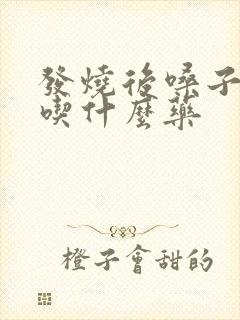 發燒後嗓子
喫什麼藥
橙子會甜的